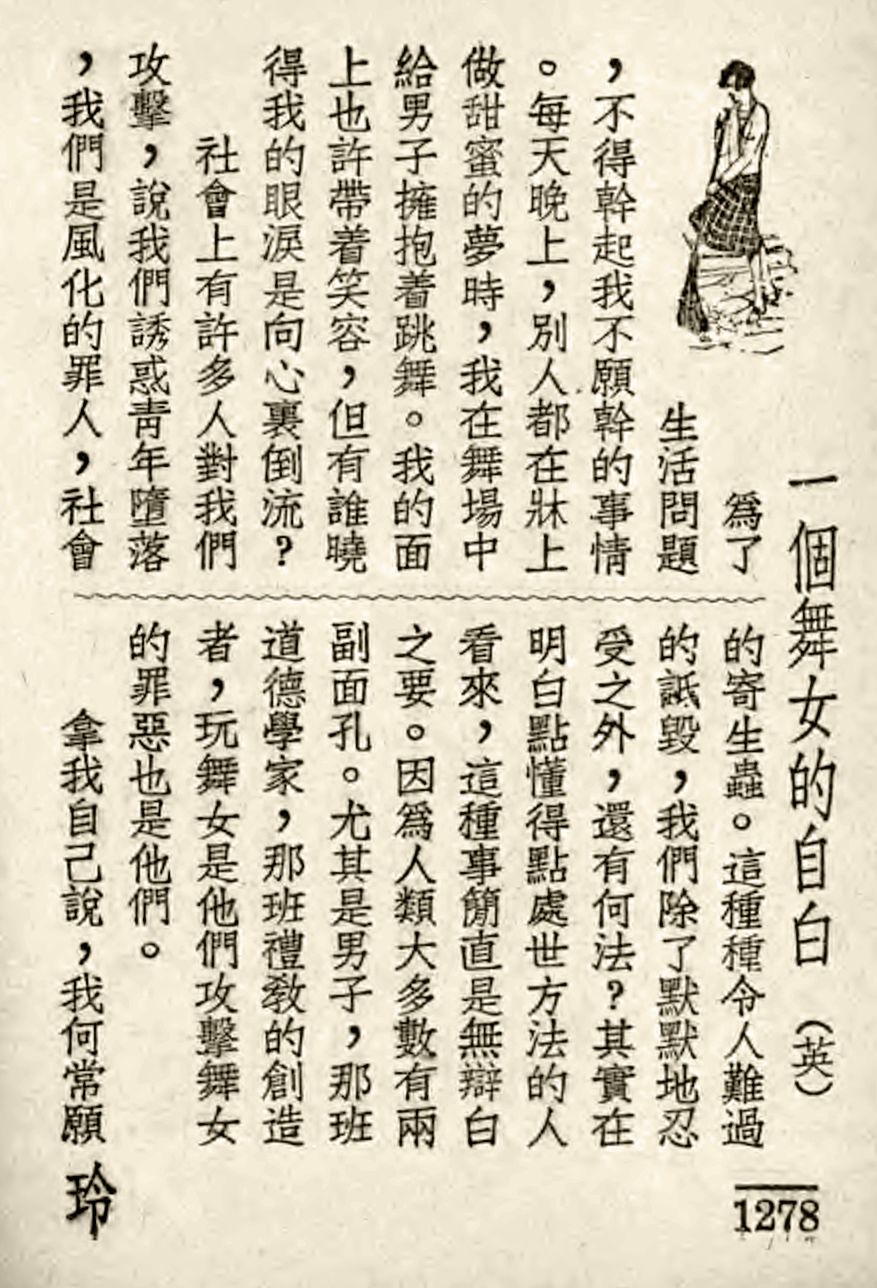 一個舞女的自白 (英)
爲了
生活問題
，不得幹起我不願幹的事情
。每天晚上，別人都在牀上
做甜蜜的夢時，我在舞場中
給男子擁抱着跳舞。我的面
上也許帶着笑容，但有誰曉
得我的眼淚是向心裏倒流？
社會上有許多人對我們
攻擊，說我們誘惑靑年墮落
，我們是風化的罪人，社會
的寄生蟲。這種種令人難過
的詆毀，我們除了默默地忍
受之外，還有何法？其實在
明白點懂得點處世方法的人
看來，這種事簡直是無辯白
之要。因爲人類大多數有兩
副面孔。尤其是男子，那班
道德學家，那班禮敎的創造
者，玩舞女是他們攻擊舞女
的罪惡也是他們。
拿我自己說，我何常願
玲
1278